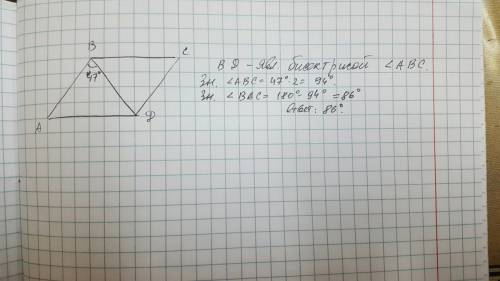 B
C
47°
A
D
BD - явл. биссектрисой ∠ABC.
Зн. ∠ABC = 47°·2 = 94°.
Зн. ∠BAC = 180° - 94° = 86°
Ответ: 86°.